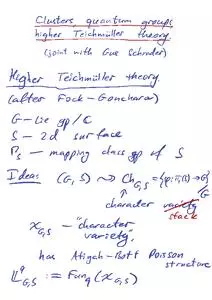 Clusters, quantum groups
higher Teichmüller theory
(joint with Gus Schrader)
Higher Teichmüller theory
(after Fock-Goncharov)
G - Lie gp/ℂ
S - 2d surface
Γ_S - mapping class gp of S
Idea: (G,S) ⤳ Ch_{G,S} = {ρ: π_1(S) → G}/G
character variety
stack
X_{G,S} - "character
variety",
has Atiyah-Bott Poisson
structure
𝕃^q_{G,S} := Fun_q(X_{G,S})